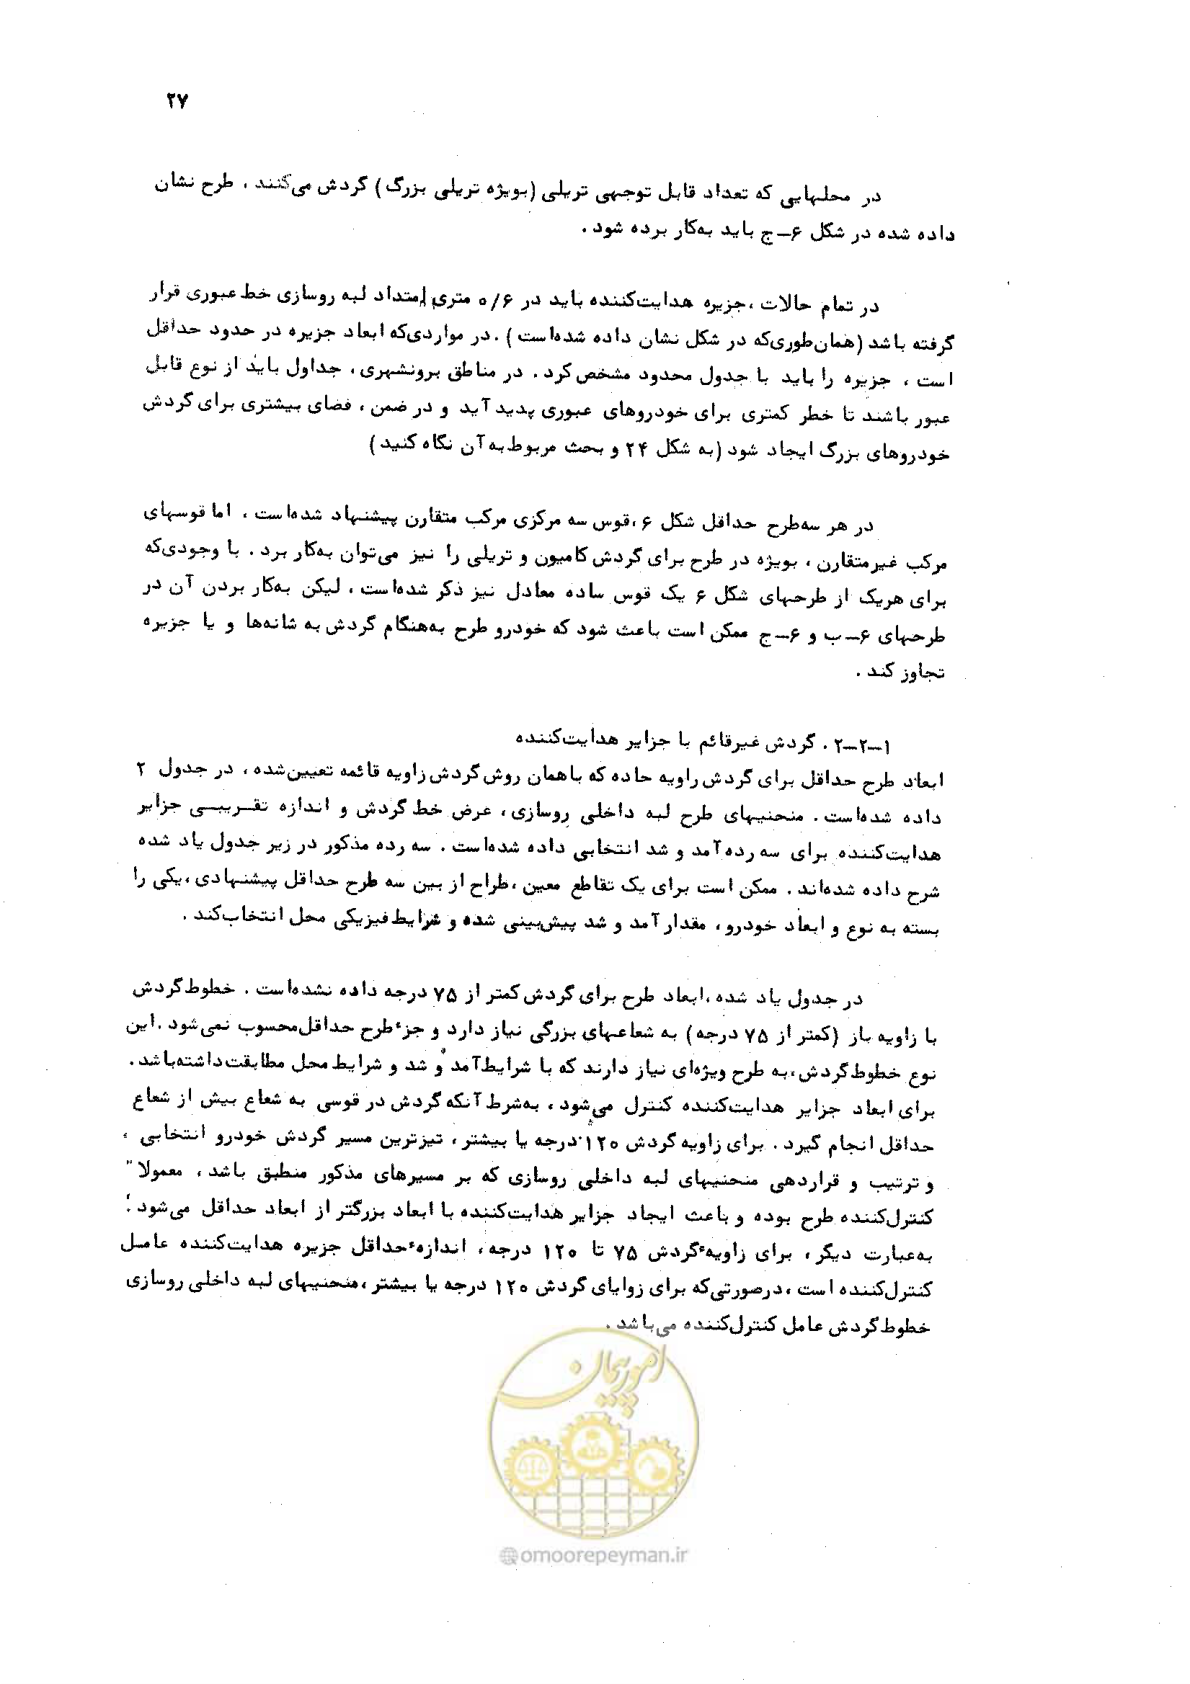 ۲۷
در محلهایی که تعداد قابل توجهی تریلی (بویژه تریلی بزرگ) گردش می‌کنند، طرح نشان
داده شده در شکل ۶ـ ج باید به‌کار برده شود.
در تمام حالات، جزیره هدایت‌کننده باید در ۰/۶ متری امتداد لبه روسازی خط عبوری قرار
گرفته باشد (همان‌طوری‌که در شکل نشان داده شده‌است). در مواردی‌که ابعاد جزیره در حدود حداقل
است، جزیره را باید با جدول محدود مشخص کرد. در مناطق برونشهری، جداول باید از نوع قابل
عبور باشند تا خطر کمتری برای خودروهای عبوری پدید آید و در ضمن، فضای بیشتری برای گردش
خودروهای بزرگ ایجاد شود (به شکل ۲۴ و بحث مربوط به آن نگاه کنید)
در هر سه‌طرح حداقل شکل ۶، قوس سه مرکزی مرکب متقارن پیشنهاد شده‌است، اما قوسهای
مرکب غیرمتقارن، بویژه در طرح برای گردش کامیون و تریلی را نیز می‌توان به‌کار برد. با وجودی‌که
برای هریک از طرحهای شکل ۶ یک قوس ساده معادل نیز ذکر شده‌است، لیکن به‌کار بردن آن در
طرحهای ۶ـ ب و ۶ـ ج ممکن است باعث شود که خودرو طرح به‌هنگام گردش به شانه‌ها و یا جزیره
تجاوز کند.
۱ـ۲ـ۲. گردش غیرقائم با جزایر هدایت‌کننده
ابعاد طرح حداقل برای گردش زاویه حاده که با همان روش گردش زاویه قائمه تعیین‌شده، در جدول ۲
داده شده‌است. منحنیهای طرح لبه داخلی روسازی، عرض خط گردش و اندازه تقـریبـی جزایر
هدایت‌کننده برای سه رده‌آمد و شد انتخابی داده شده‌است. سه رده مذکور در زیر جدول یاد شده
شرح داده شده‌اند. ممکن است برای یک تقاطع معین، طراح از بین سه طرح حداقل پیشنهادی، یکی را
بسته به نوع و ابعاد خودرو، مقدار آمد و شد پیش‌بینی شده و شرایط فیزیکی محل انتخاب‌کند.
در جدول یاد شده، ابعاد طرح برای گردش کمتر از ۷۵ درجه داده نشده‌است. خطوط گردش
با زاویه باز (کمتر از ۷۵ درجه) به شعاعهای بزرگی نیاز دارد و جزء طرح حداقل محسوب نمی‌شود. این
نوع خطوط گردش، به طرح ویژه‌ای نیاز دارند که با شرایط آمد و شد و شرایط محل مطابقت داشته‌باشد.
برای ابعاد جزایر هدایت‌کننده کنترل می‌شود، به‌شرط آنکه گردش در قوسی به شعاع بیش از شعاع
حداقل انجام گیرد. برای زاویه گردش ۱۲۰ درجه یا بیشتر، تیزترین مسیر گردش خودرو انتخابی،
و ترتیب و قراردهی منحنیهای لبه داخلی روسازی که بر مسیرهای مذکور منطبق باشد، معمولا"
کنترل‌کننده طرح بوده و باعث ایجاد جزایر هدایت‌کننده با ابعاد بزرگتر از ابعاد حداقل می‌شود؛
به‌عبارت دیگر، برای زاویهٔ گردش ۷۵ تا ۱۲۰ درجه، اندازهٔ حداقل جزیره هدایت‌کننده عامل
کنترل‌کننده است، درصورتی‌که برای زوایای گردش ۱۲۰ درجه یا بیشتر، منحنیهای لبه داخلی روسازی
خطوط گردش عامل کنترل‌کننده می‌باشد.
امور پیمان
omoorepeyman.ir